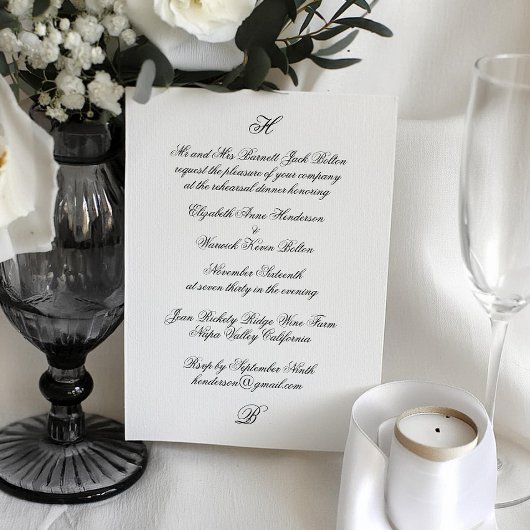 H
Mr and Mrs Barnett Jack Bolton
request the pleasure of your company
at the rehearsal dinner honoring
Elizabeth Anne Henderson
&
Warwick Keven Bolton
November Sixteenth
at seven thirty in the evening
Joan Rickety Ridge Wine Farm
Napa Valley California
Rsvp by September Ninth
henderson@gmail.com
B